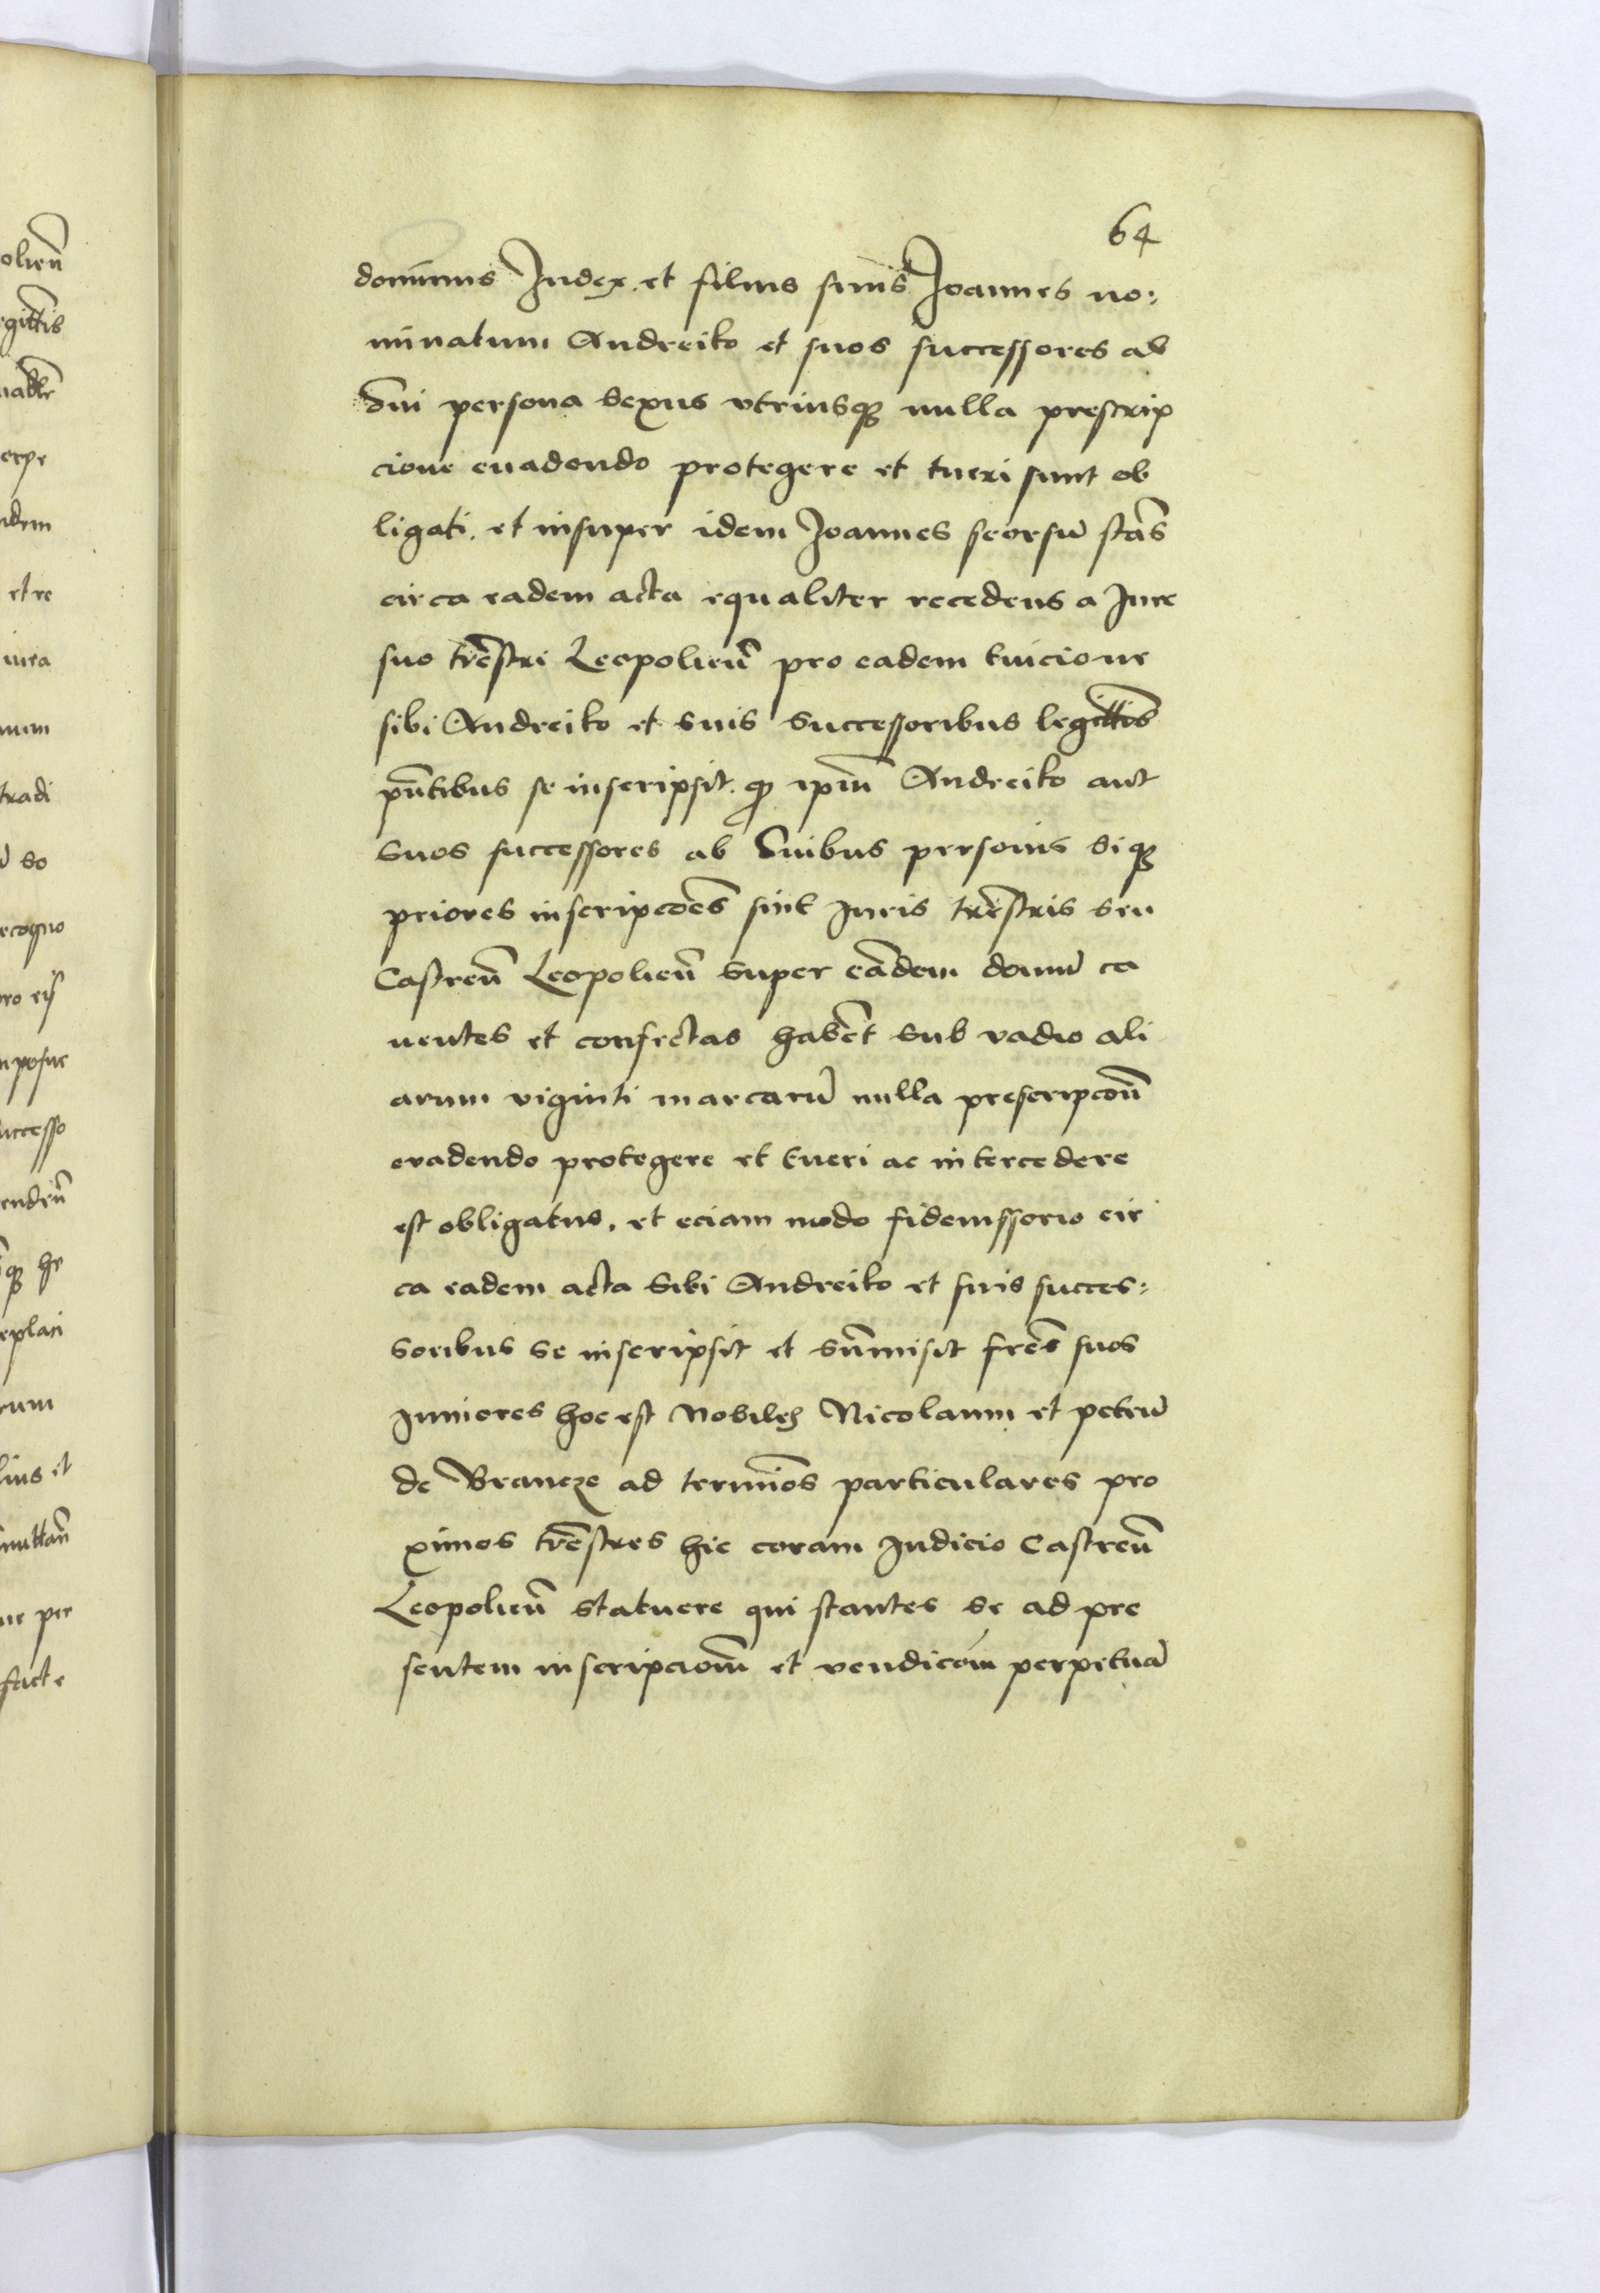 64
dominus Judex et filius suus Joannes no:
minatum Andreiko et suos successores ab
o͞ni persona sexus vtriusqꝫ nulla prescrip
cione euadendo protegere et tueri sunt ob
ligati. et insuper idem Joannes seorsu͞ sta͞s
circa eadem acta equaliter recedens a Jure
suo tr͞estri Leopolien͞ pro eadem tuicione
sibi Andreiko et suis successoribus legitti͞s
pn͞tibus se inscripsit. qꝫ ip͞m Andreiko aut
suos successores ab o͞nibus personis siqꝫ
priores inscripcoe͞s sint Juris tr͞estris seu
Castren͞ Leopolien͞ super ea͞dem domu͞ ca
uentes et confectas haben͞t sub vadio ali
arum viginti marcaru͞ nulla prescripcon͞
evadendo protegere et tueri ac intercedere
est obligatus. et eciam modo fideiussorio cir
ca eadem acta sibi Andreiko et suis succes:
soribus se inscripsit et su͞misit fre͞s suos
Juniores hoc est Nobiles Nicolaum et petru͞
de Brancze ad termi͞os particulares pro
ximos tr͞estres hic coram Judicio Castren͞
Leopolien͞ statuere qui stantes se ad pre
sentem inscripciom͞ et vendico͞m perpetua͞
olien͞
egitti͞s
erpe
idem
et re
iura
tradi
so
ecogno
pro eis
mposue
uccesso
qꝫ he
eplaci
rum
lius et
ue per
facte